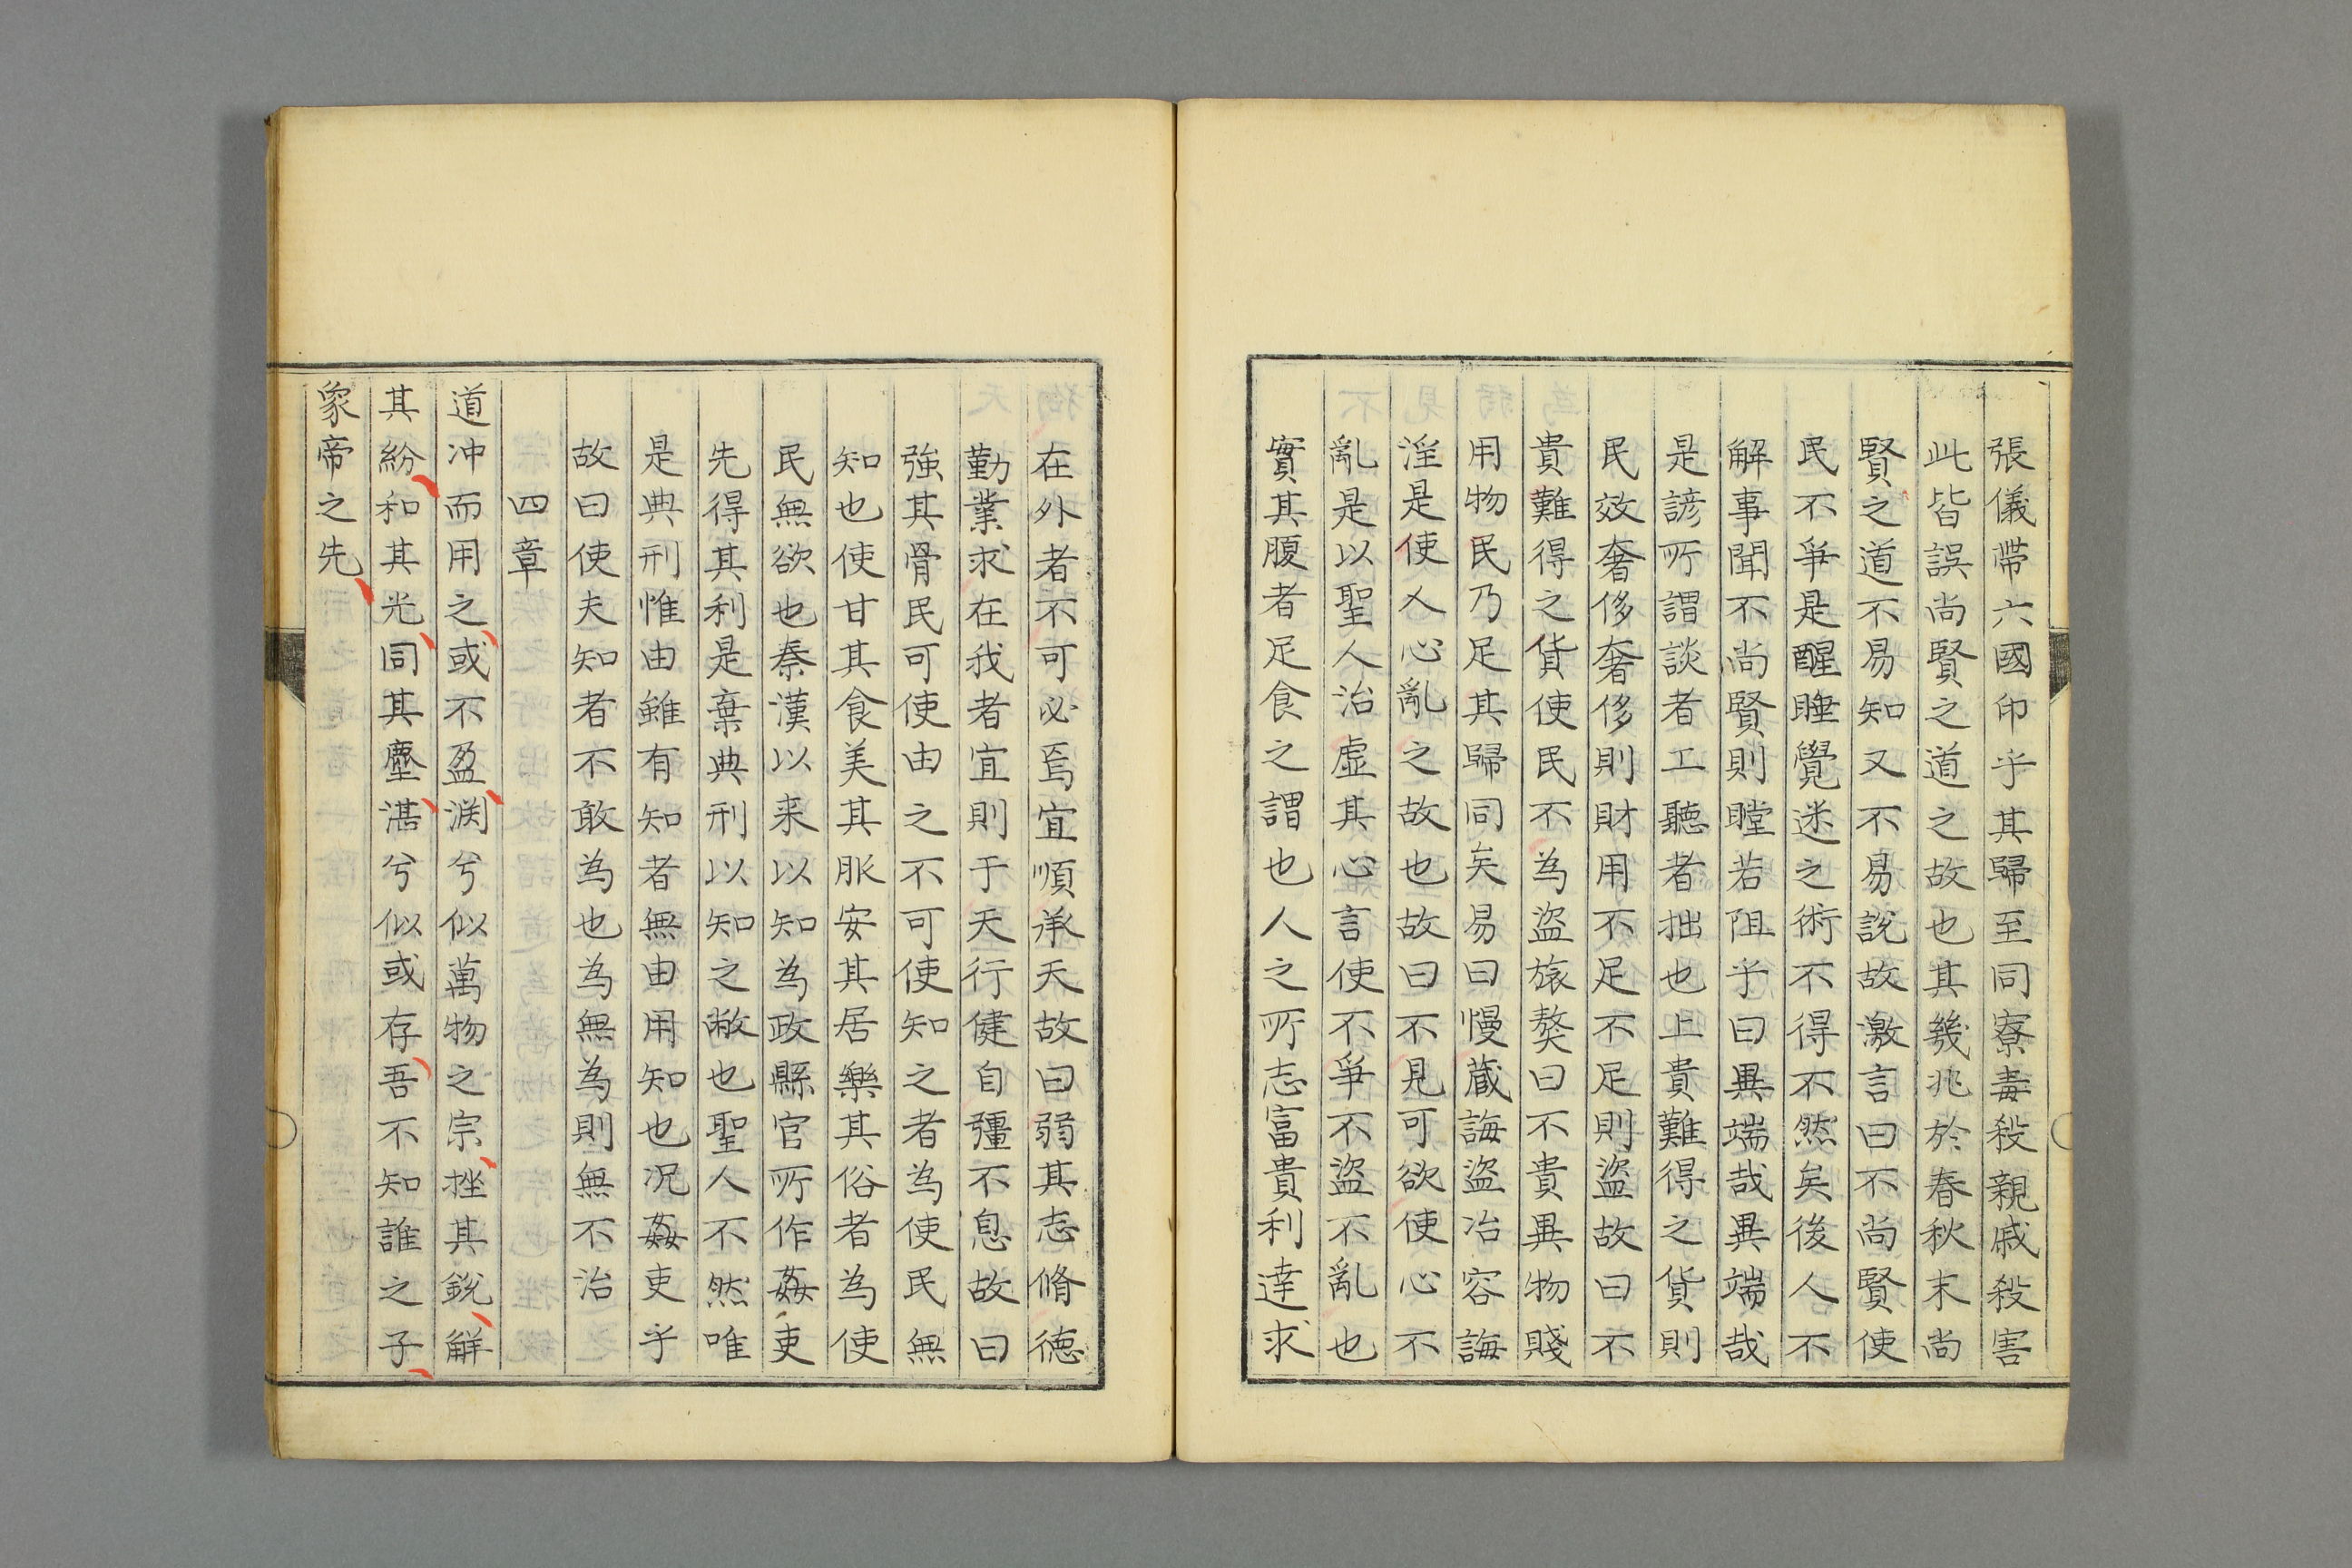 張儀帶六國印乎其歸至同寮毒殺親戚殺害
此皆誤尚賢之道之故也其幾兆於春秋末尚
賢之道不易知又不易說故激言曰不尚賢使
民不爭是醒睡覺迷之術不得不然矣後人不
解事聞不尚賢則瞠若阻乎曰異端哉異端哉
是諺所謂談者工聽者拙也上貴難得之貨則
民效奢侈奢侈則財用不足不足則盜故曰不
貴難得之貨使民不為盜旅獒曰不貴異物賤
用物民乃足其歸同矣易曰慢藏誨盜冶容誨
淫是使人心亂之故也故曰不見可欲使心不
亂是以聖人治虛其心言使不爭不盜不亂也
實其腹者足食之謂也人之所志富貴利達求
在外者不可必焉宜順承天故曰弱其志脩德
勤業求在我者宜則于天行健自彊不息故曰
強其骨民可使由之不可使知之者為使民無
知也使甘其食美其服安其居樂其俗者為使
民無欲也秦漢以来以知為政縣官所作姦吏
先得其利是棄典刑以知之敝也聖人不然唯
是典刑惟由雖有知者無由用知也况姦吏乎
故曰使夫知者不敢為也為無為則無不治
四章
道冲而用之或不盈渊兮似萬物之宗挫其銳解
其紛和其光同其塵湛兮似或存吾不知誰之子
象帝之先